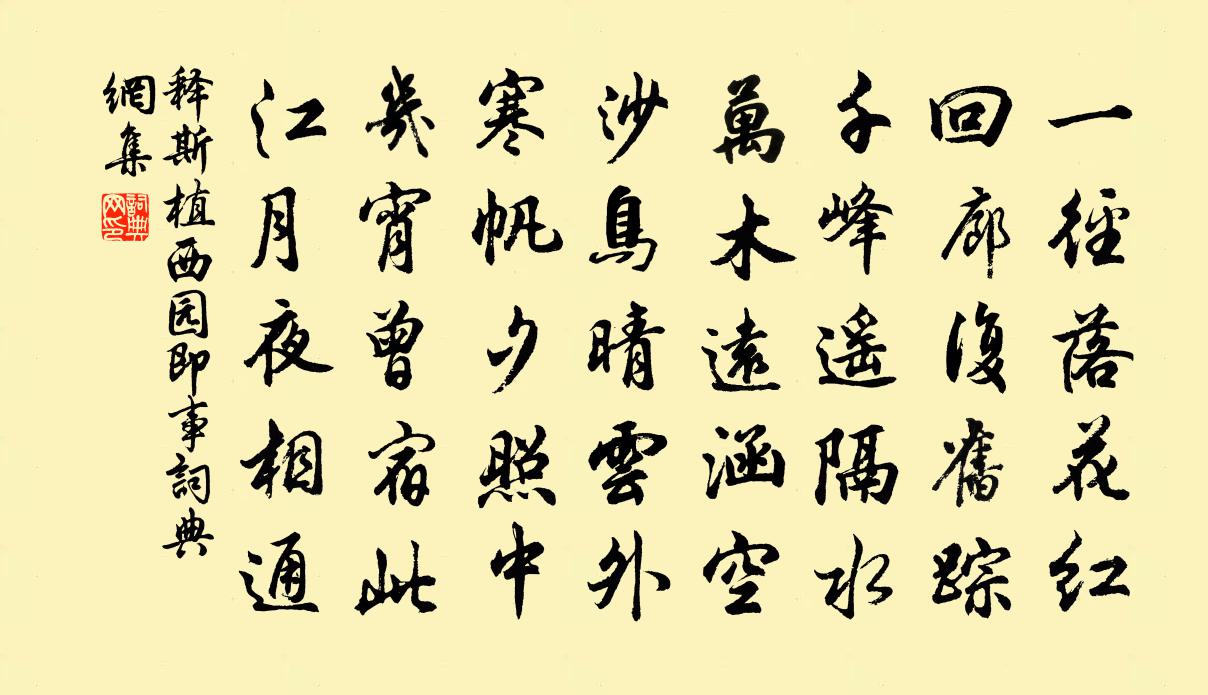 一徑落花紅
回廊復舊踪
千峰遥隔水
萬木遠涵空
沙鳥晴雲外
寒帆夕照中
幾宵曾宿此
江月夜相通
释斯植西园即事詞典
網集
詞典
网印